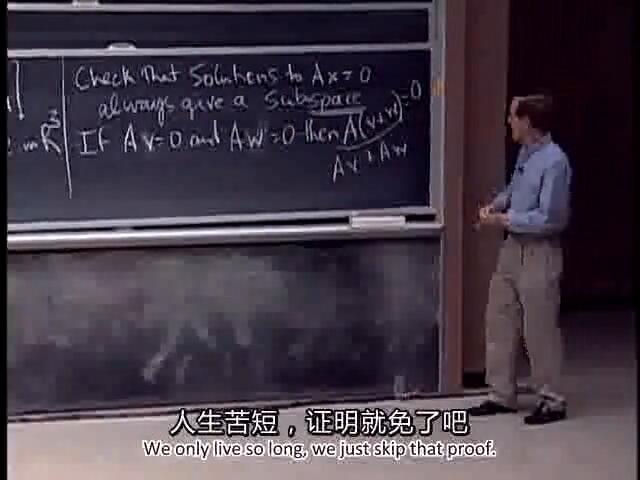 Check that Solutions to Ax=0
always give a Subspace
in R³
If Av=0 and Aw=0 then A(v+w)=0
Av+Aw
人生苦短，证明就免了吧
We only live so long, we just skip that proof.